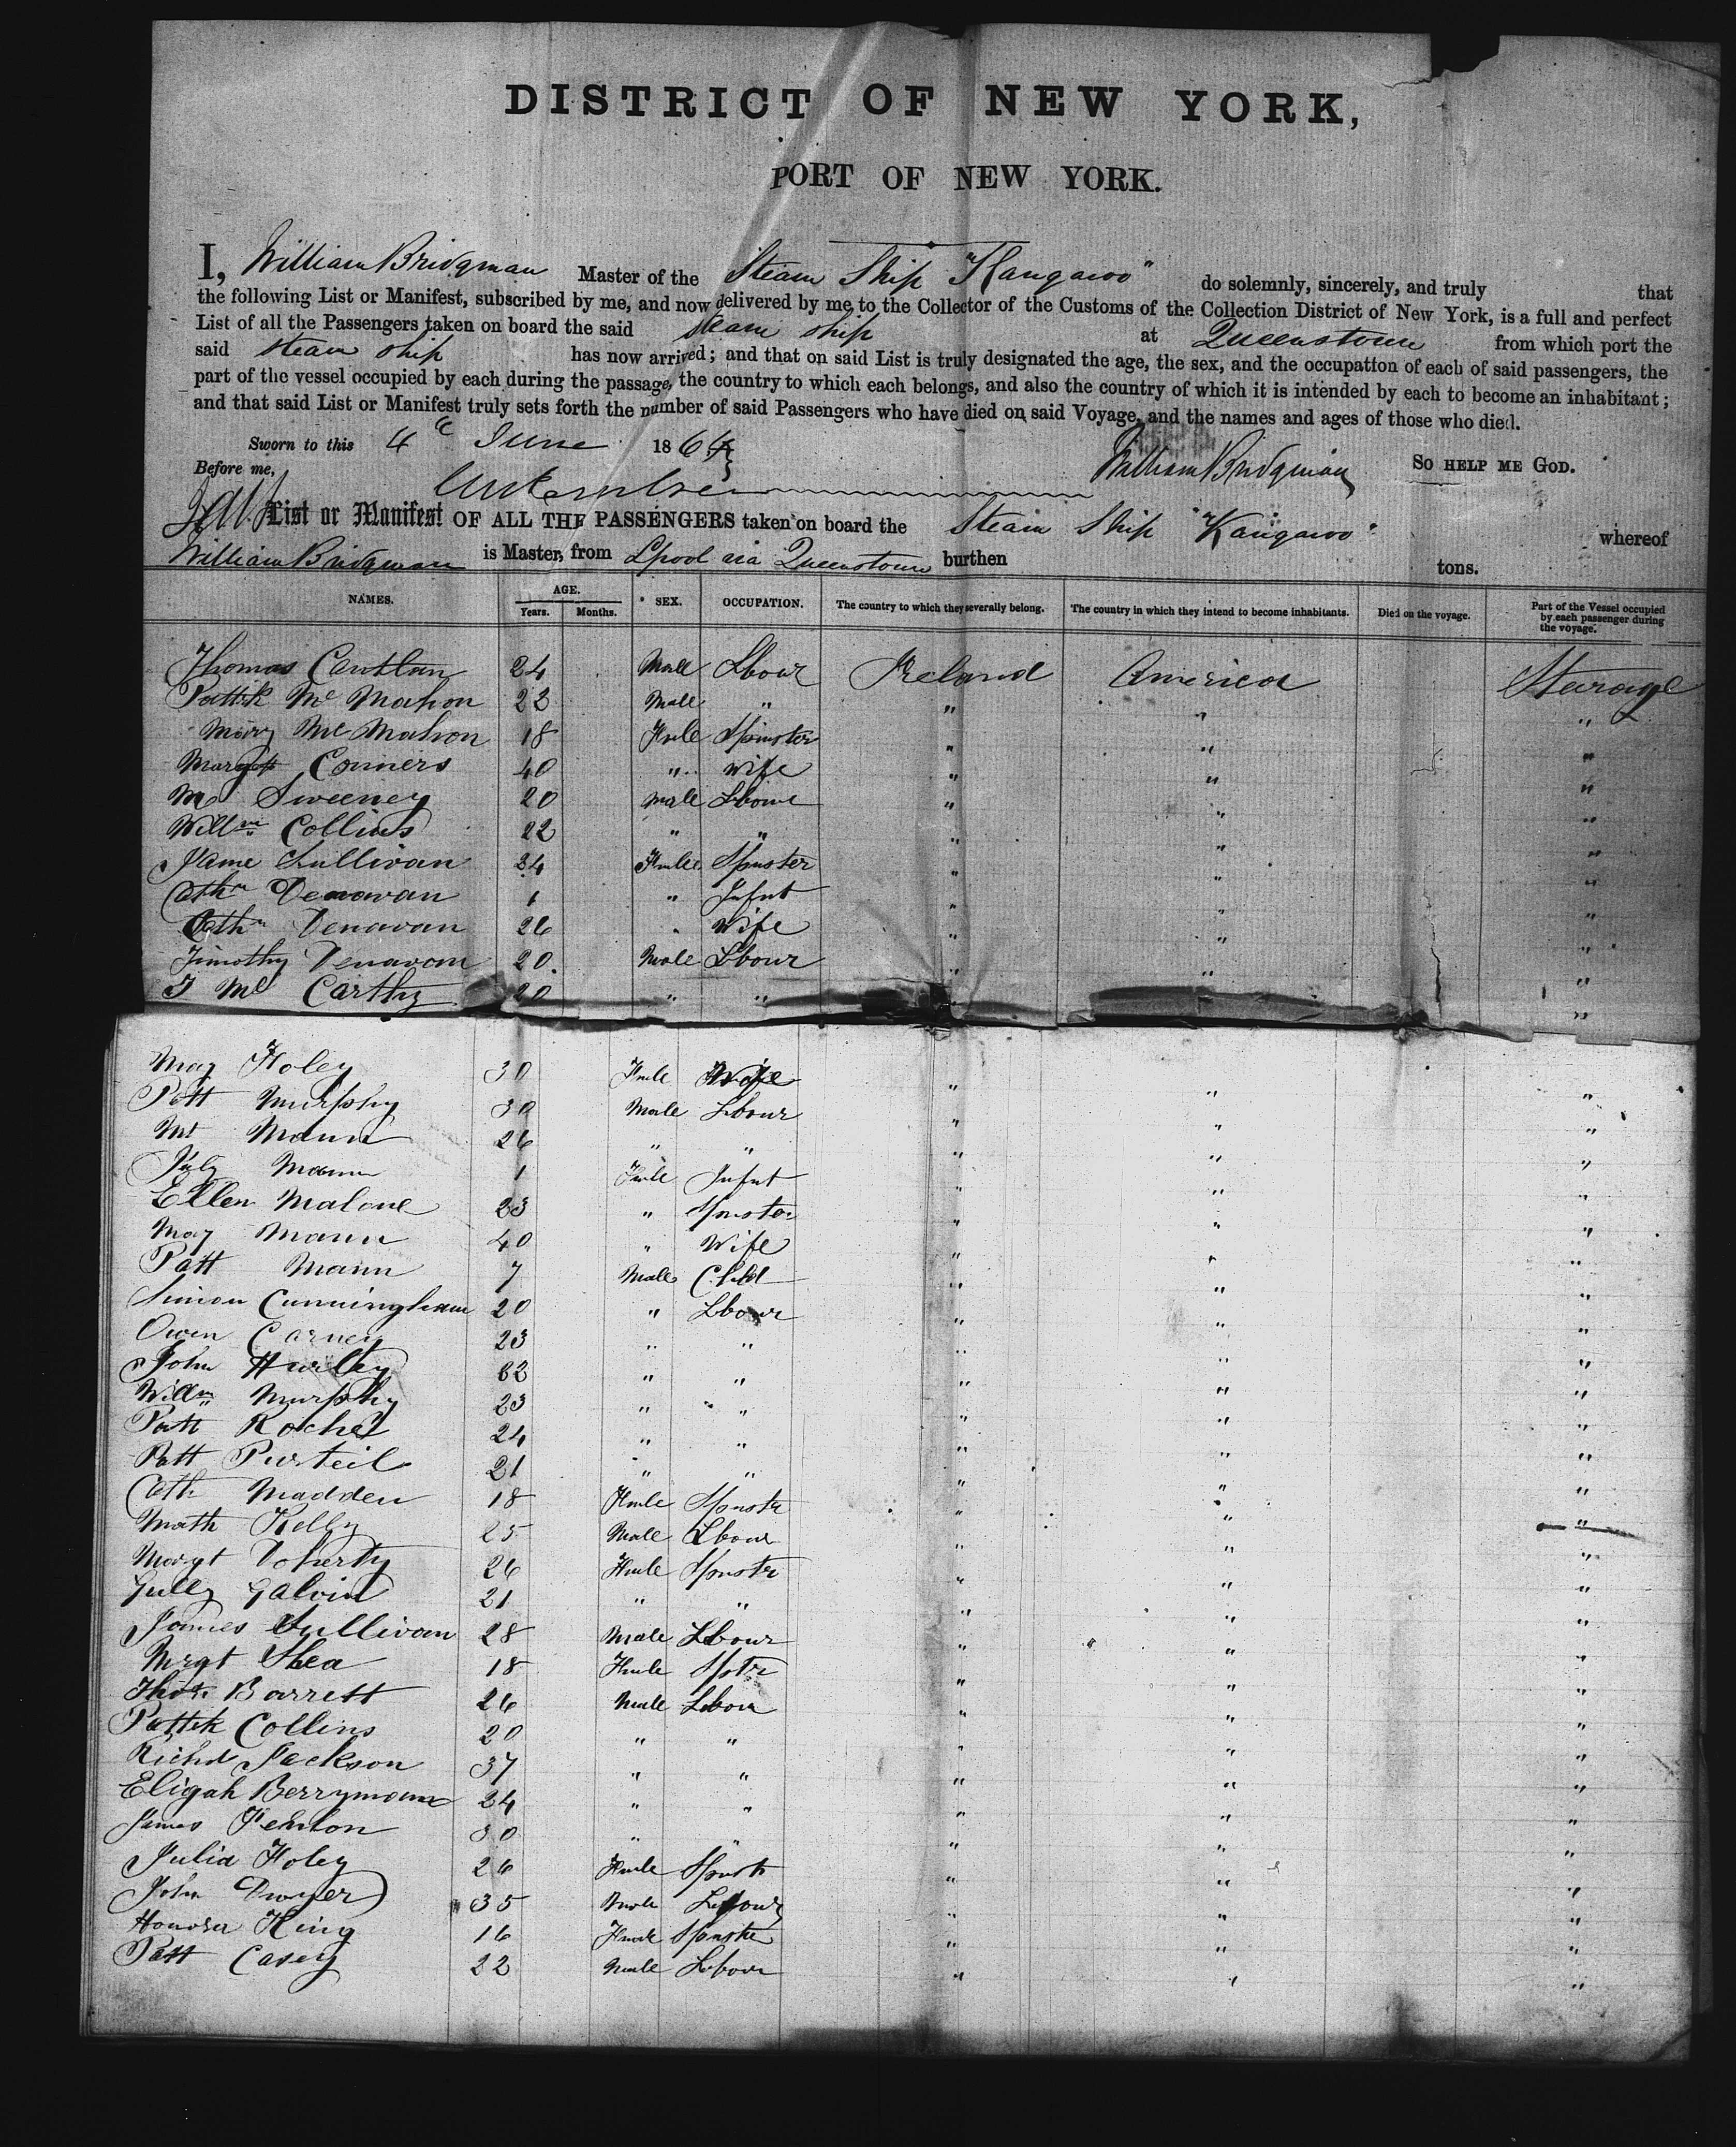 DISTRICT OF NEW YORK,
PORT OF NEW YORK.
I, William Bridgman Master of the Steam Ship "Kangaroo" do solemnly, sincerely, and truly that
the following List or Manifest, subscribed by me, and now delivered by me to the Collector of the Customs of the Collection District of New York, is a full and perfect
List of all the Passengers taken on board the said steam ship at Queenstown from which port the
said steam ship has now arrived; and that on said List is truly designated the age, the sex, and the occupation of each of said passengers, the
part of the vessel occupied by each during the passage, the country to which each belongs, and also the country of which it is intended by each to become an inhabitant;
and that said List or Manifest truly sets forth the number of said Passengers who have died on said Voyage, and the names and ages of those who died.
Sworn to this 4 June 1864
Before me, William Bridgman SO HELP ME GOD.
List or Manifest OF ALL THE PASSENGERS taken on board the Steam Ship "Kangaroo" whereof
William Bridgman is Master, from Lpool via Queenstown burthen tons.
NAMES. AGE. Years. Months. SEX. OCCUPATION. The country to which they severally belong. The country in which they intend to become inhabitants. Died on the voyage. Part of the Vessel occupied by each passenger during the voyage.
Thomas 24 Male Lbour Ireland America Starage
Pattk Mc Mahon 22 Male " " " "
Mary Mc Mahon 18 Fmle Spinster " " "
Margt Conners 40 " Wife " " "
Ml Sweeney 20 Male Lbour " " "
Willm Collins 22 " " " " "
Jame Sullivan 24 Fmle Spnster " " "
Cathn Denavan 1 " Infnt " " "
Cathn Denavan 26 " Wife " " "
Timothy Denavan 20 Male Lbour " " "
J Mc Carthy 20 " " " " "
May Foley 30 Fmle Wife " " "
Patt Murphy 30 Male Lbour " " "
Mt Mann 26 " " " " "
July Mann 1 Fmle Infnt " " "
Ellen Malone 23 " Spnster " " "
May Mann 40 " Wife " " "
Patt Mann 7 Male Child " " "
Simon Cunningham 20 " Lbour " " "
Owen Carney 23 " " " " "
John Hurley 32 " " " " "
Willm Murphy 23 " " " " "
Patt Roche 24 " " " " "
Patt Purteil 21 " " " " "
Cath Madden 18 Fmle Spnstr " " "
Math Kelly 25 Male Lbour " " "
Margt Doherty 26 Fmle Spnstr " " "
Galvin 21 " " " " "
James Sullivan 28 Male Lbour " " "
Mrgt Shea 18 Fmle Spstr " " "
Thos Barrett 26 Male Lbour " " "
Pattk Collins 20 " " " " "
Richd Jackson 37 " " " " "
Eligah Berrymann 24 " " " " "
James Fenton 30 " " " " "
Julia Foley 26 Fmle Spnstr " " "
John Dwyer 35 Male Lbour " " "
Honora King 16 Fmle Spnstr " " "
Patt Casey 22 Male Lbour " " "